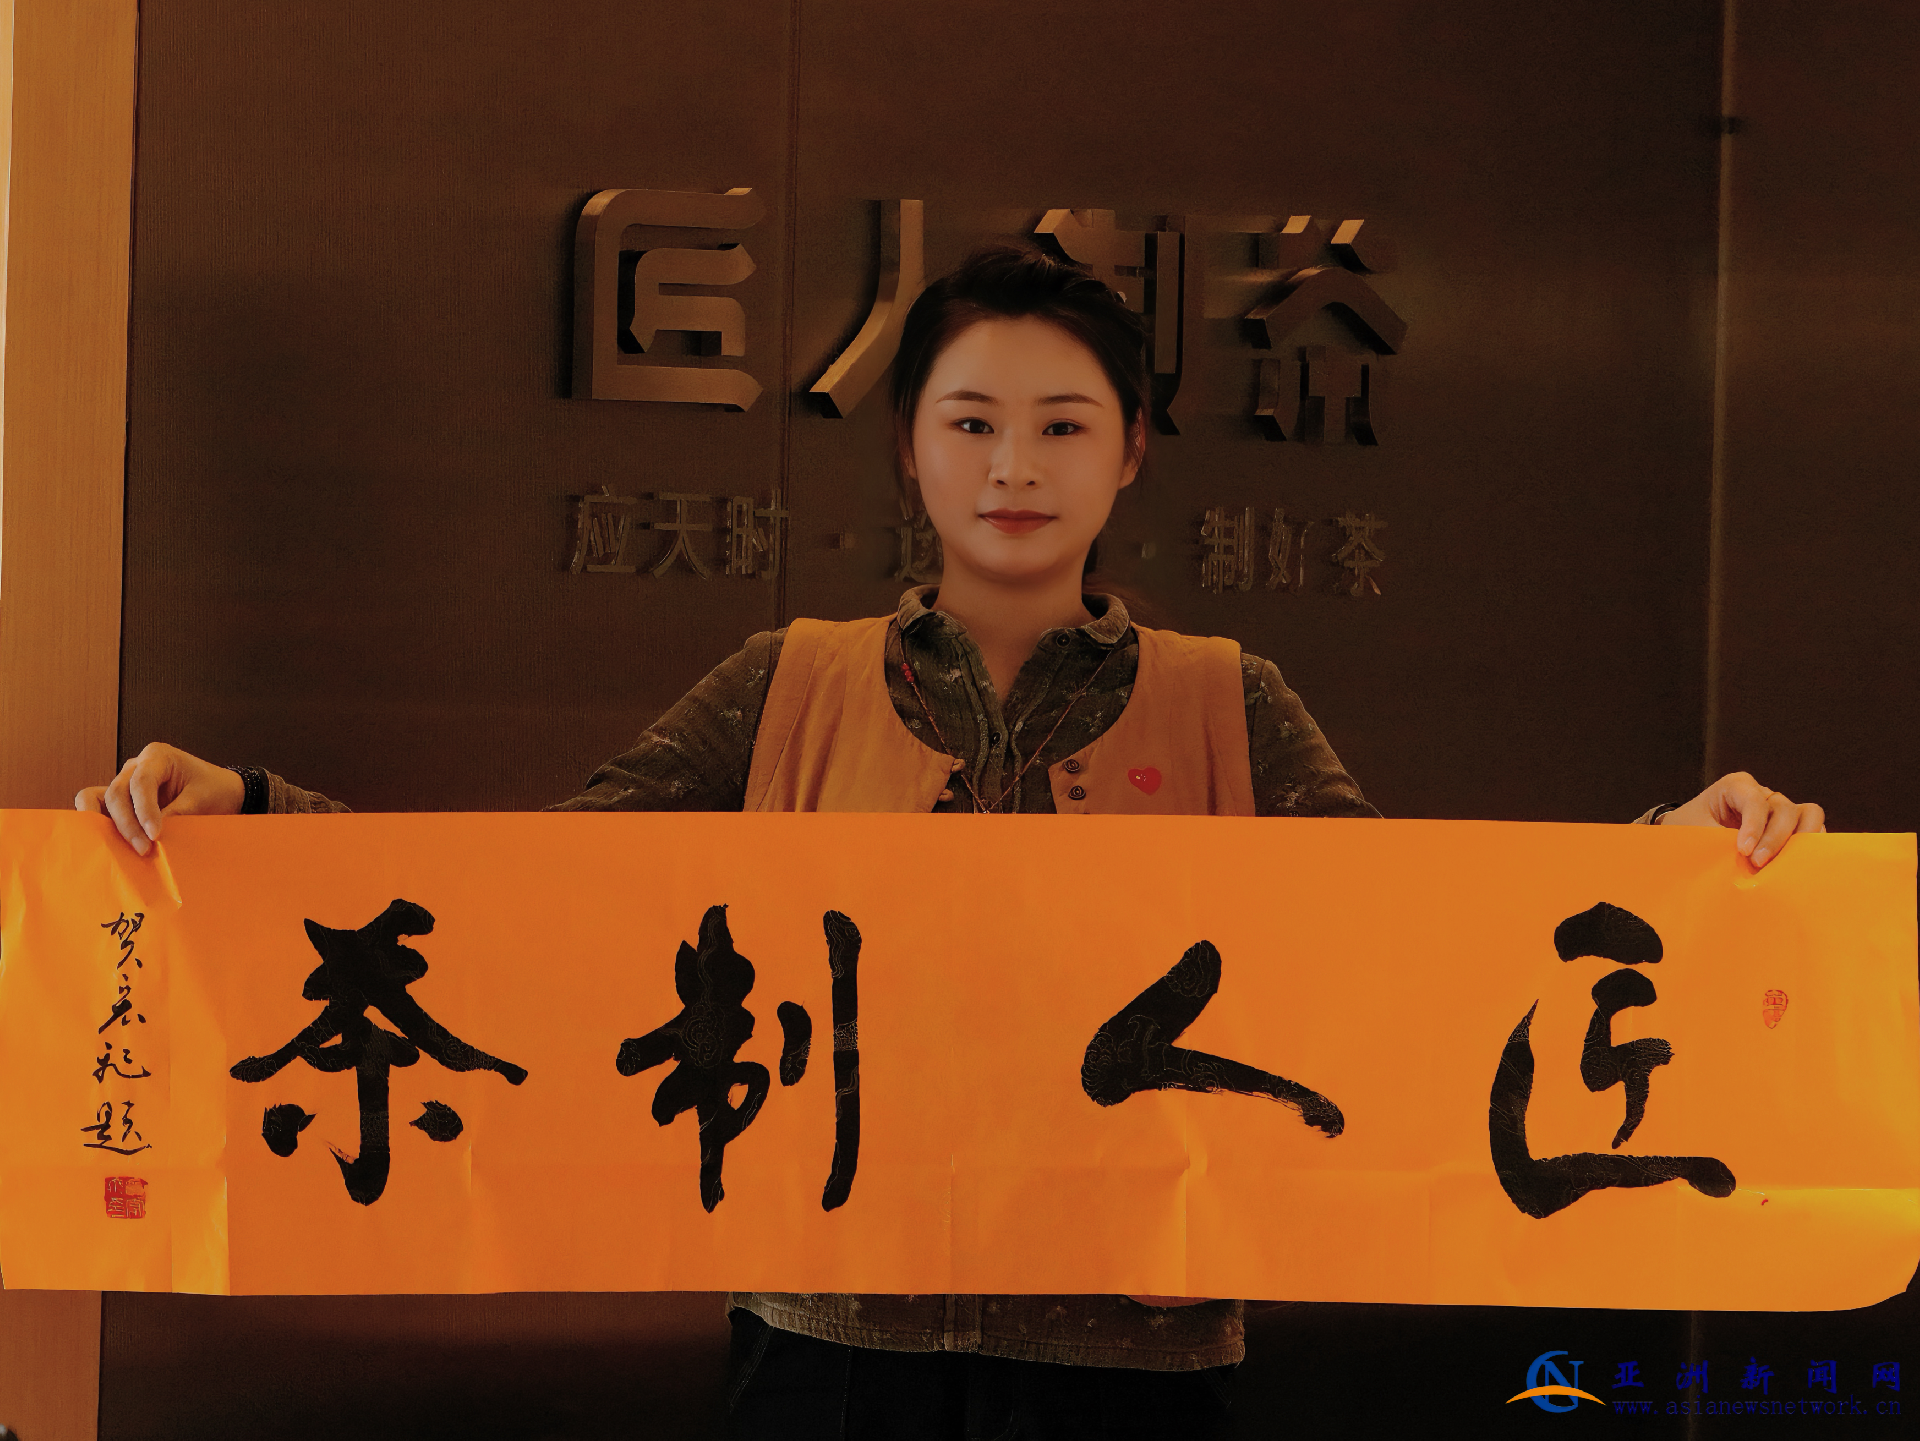 匠人制茶
应天时·选 · 制好茶
匠人制茶
贺宏礼题
亚洲新闻网
www.asianewsnetwork.cn